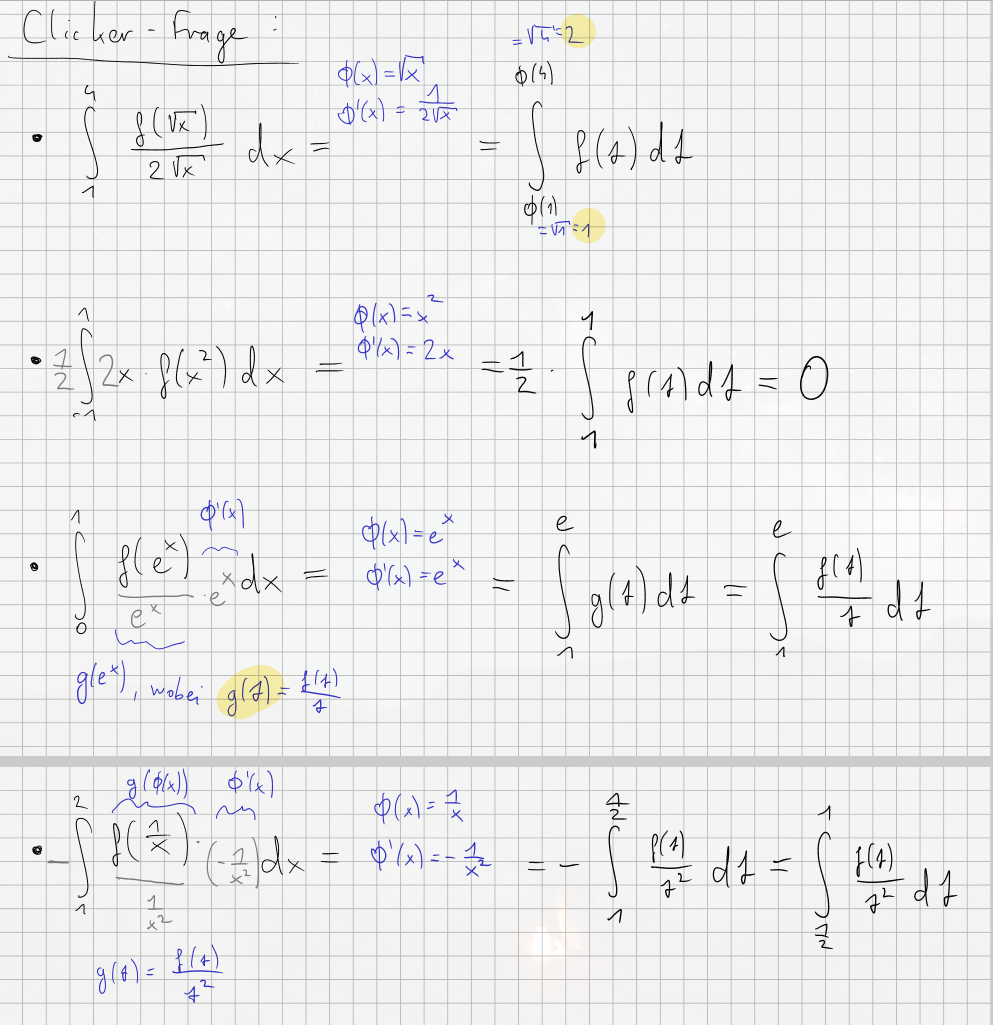 Clicker-Frage:
• ∫₁⁴ f(√x)/(2√x) dx = ϕ(x) = √x, ϕ'(x) = 1/(2√x) = ∫_{ϕ(1) = √1 = 1}^{ϕ(4) = √4 = 2} f(t) dt
• 1/2 ∫₋₁¹ 2x · f(x²) dx = ϕ(x) = x², ϕ'(x) = 2x = 1/2 · ∫₁¹ f(t) dt = 0
ϕ'(x)
• ∫₀¹ f(eˣ)/eˣ · eˣ dx = ϕ(x) = eˣ, ϕ'(x) = eˣ = ∫₁ᵉ g(t) dt = ∫₁ᵉ f(t)/t dt
g(eˣ), wobei g(t) = f(t)/t
g(ϕ(x)) ϕ'(x)
• -∫₁² f(1/x)/(1/x²) · (-1/x²) dx = ϕ(x) = 1/x, ϕ'(x) = -1/x² = -∫₁^{1/2} f(t)/t² dt = ∫_{1/2}^1 f(t)/t² dt
g(t) = f(t)/t²